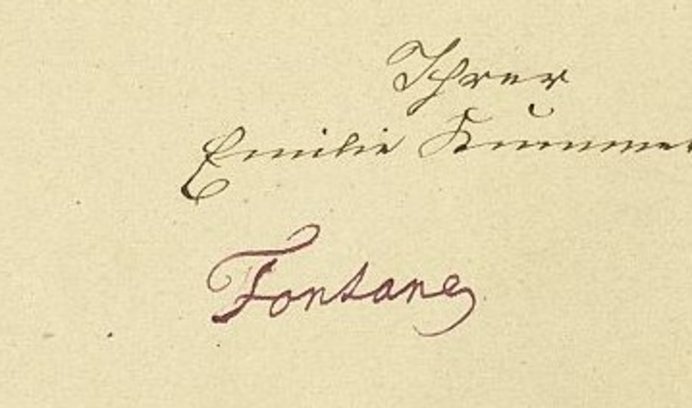 Ihrer
Emilie Kummer
Fontane